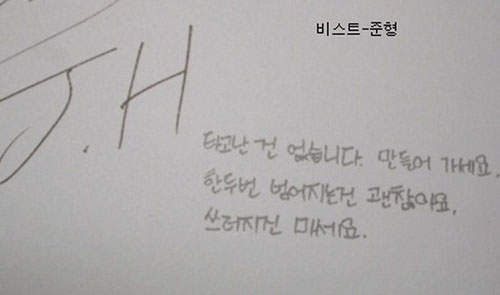 비스트-준형
J.H
타고난 건 없습니다. 만들어 가세요.
한두번 넘어지는건 괜찮아요.
쓰러지진 마세요.